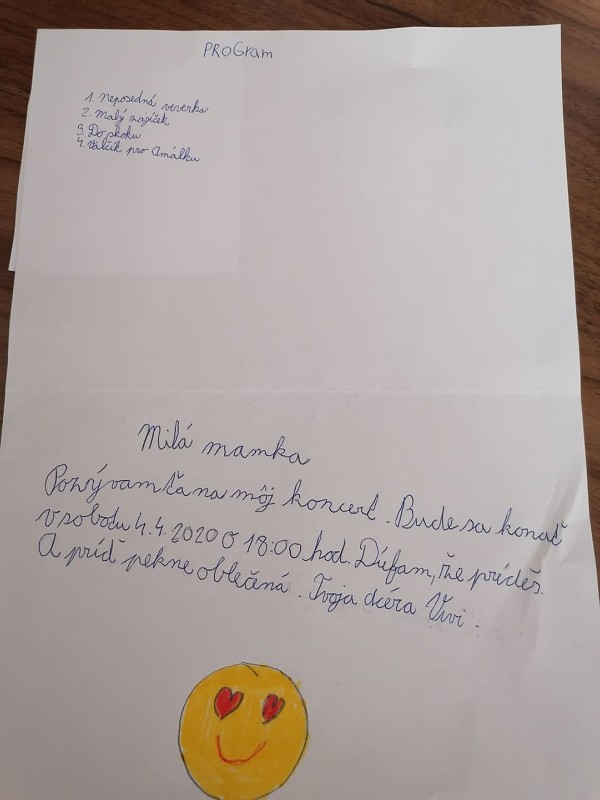 PROGram
1. Neposedná veverka
2. Malý zajíček
3. Do skoku
4. Valčík pro Amálku
Milá mamka
Pozývam ťa na môj koncert. Bude sa konať
v sobotu 4.4.2020 o 18:00 hod. Dúfam, že prídeš.
A príď pekne oblečená. Tvoja dcéra Vivi.